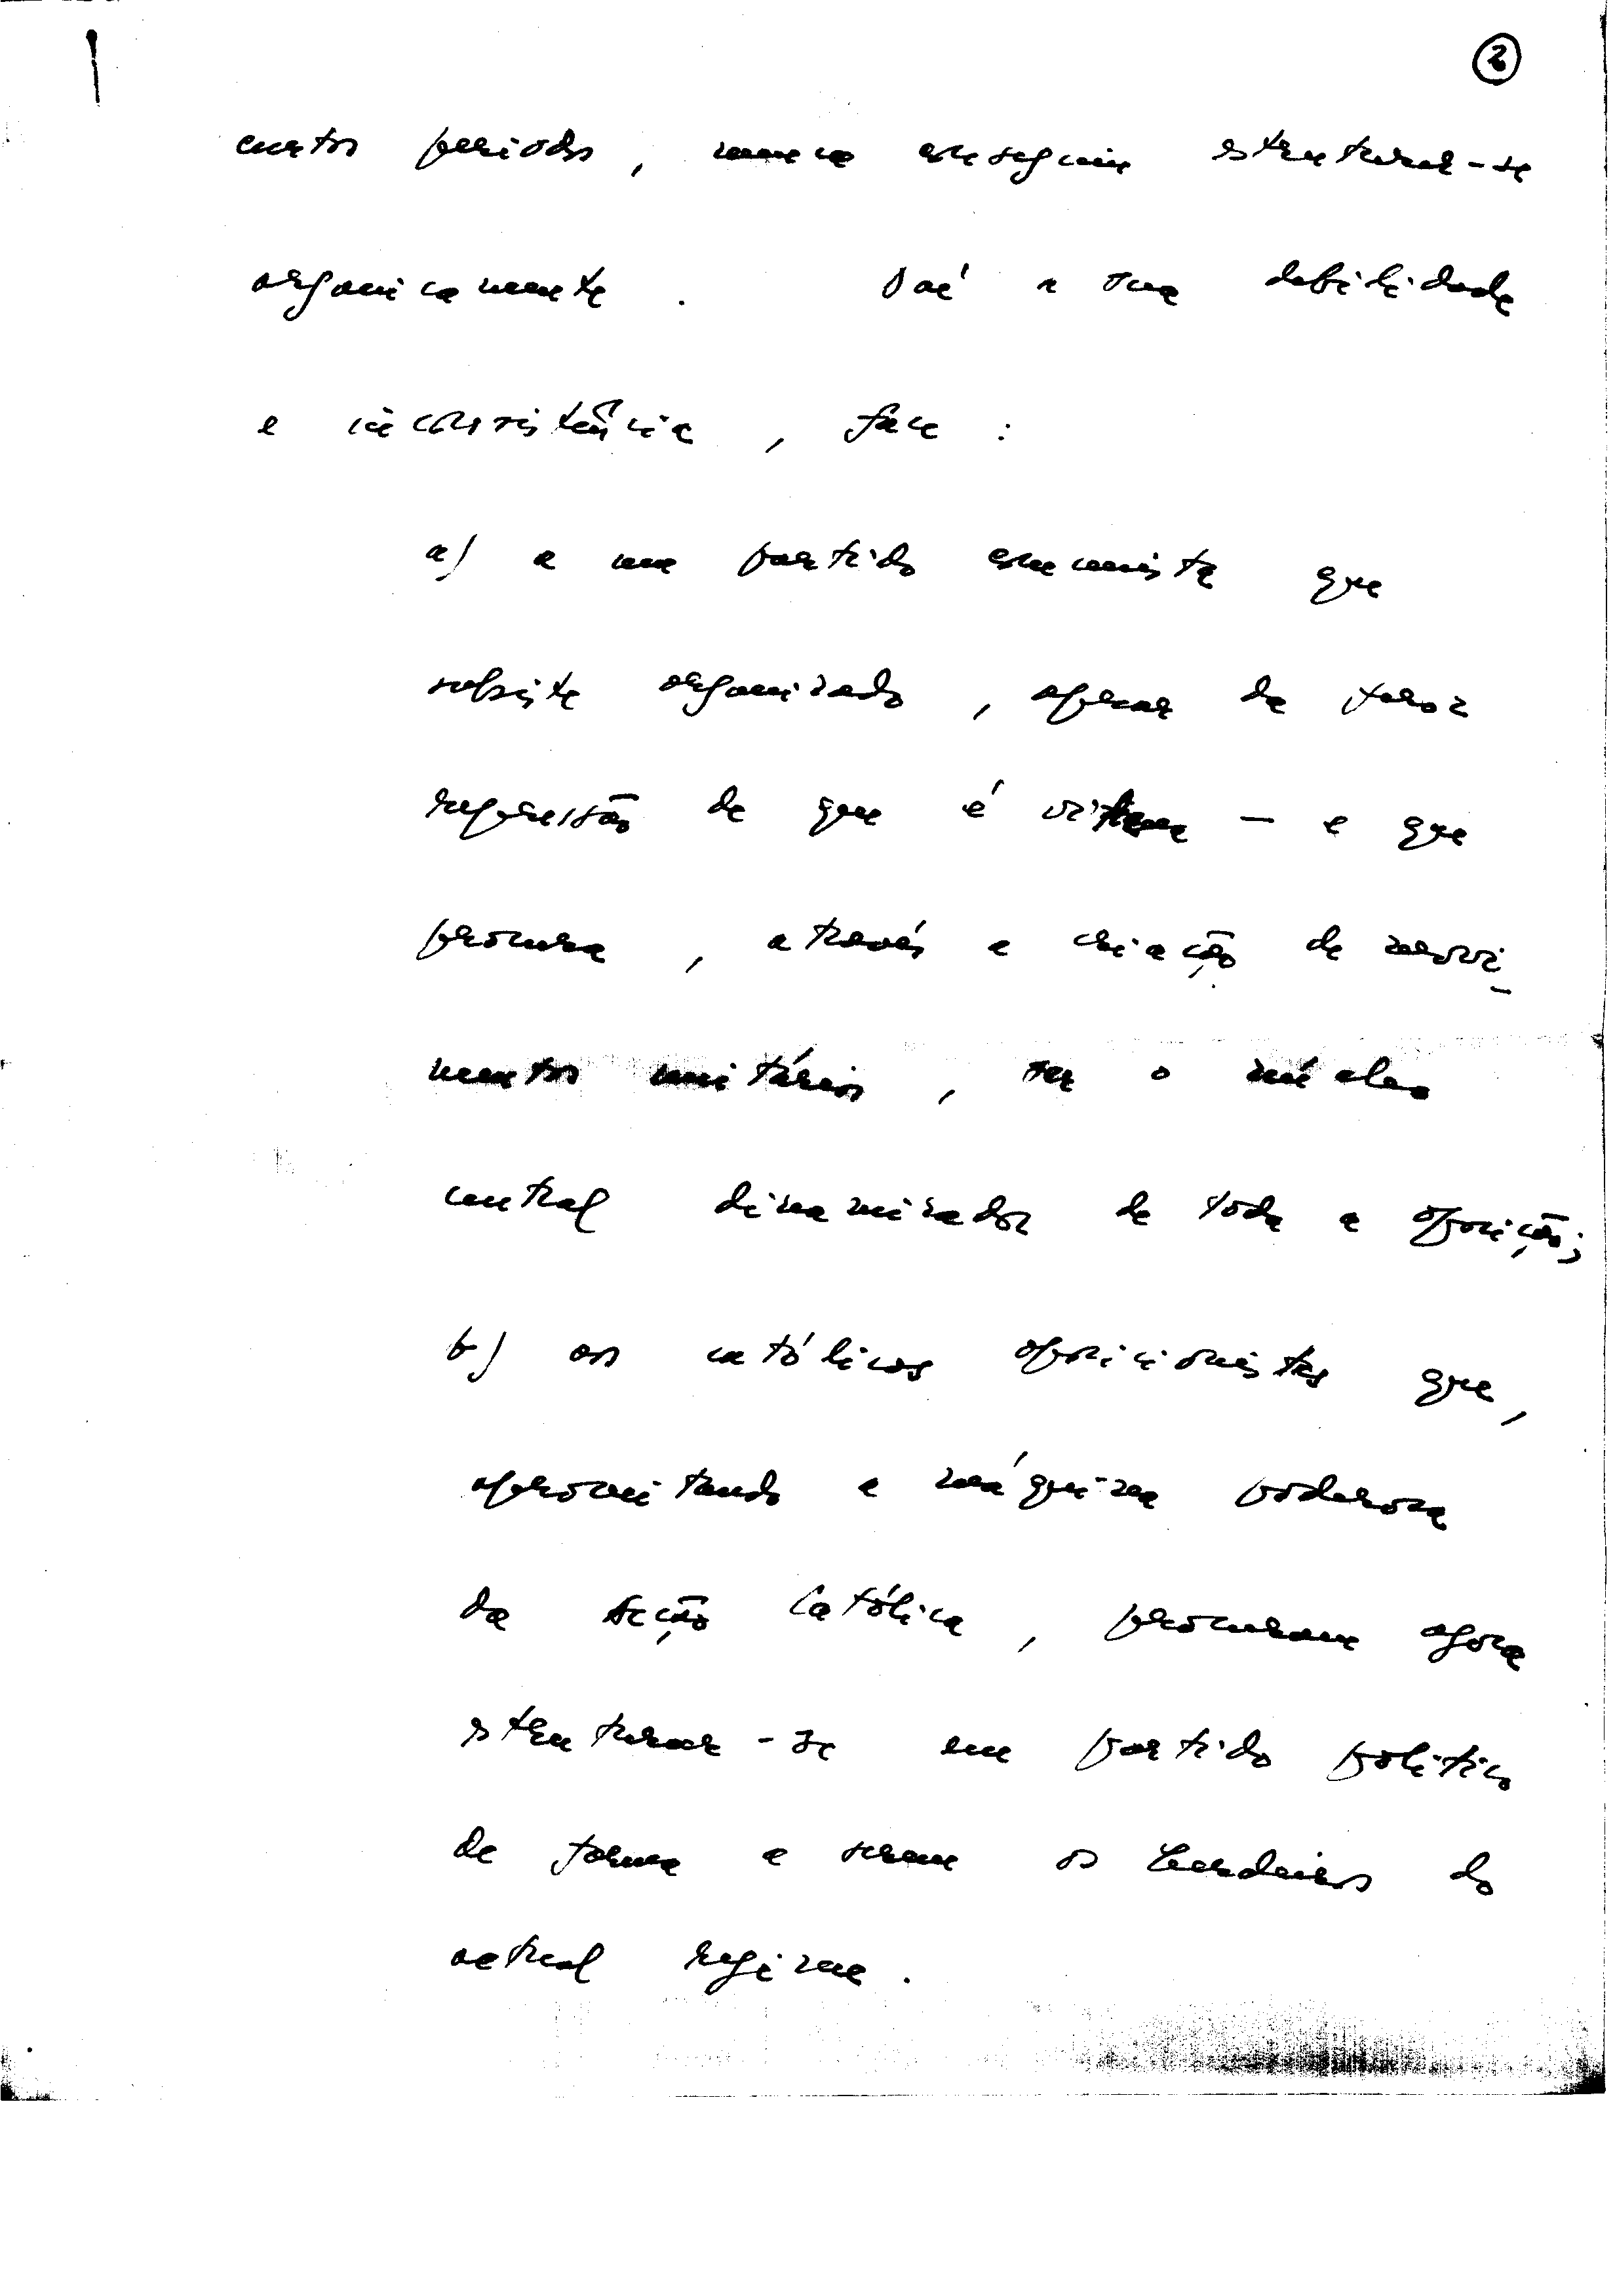 2
curtos períodos, nunca conseguiu estruturar-se
organicamente. Daí a sua debilidade
e inconsistência, face:
a) a um partido comunista que
subsiste organizado, apesar da feroz
repressão de que é vítima — e que
procura, através a criação de movi-
mentos unitários, ser o núcleo
central dinamizador de toda a oposição;
b) os católicos oposicionistas que,
aproveitando a máquina poderosa
da Acção Católica, procuram agora
estruturar-se em partido político
de forma a serem os herdeiros do
actual regime.